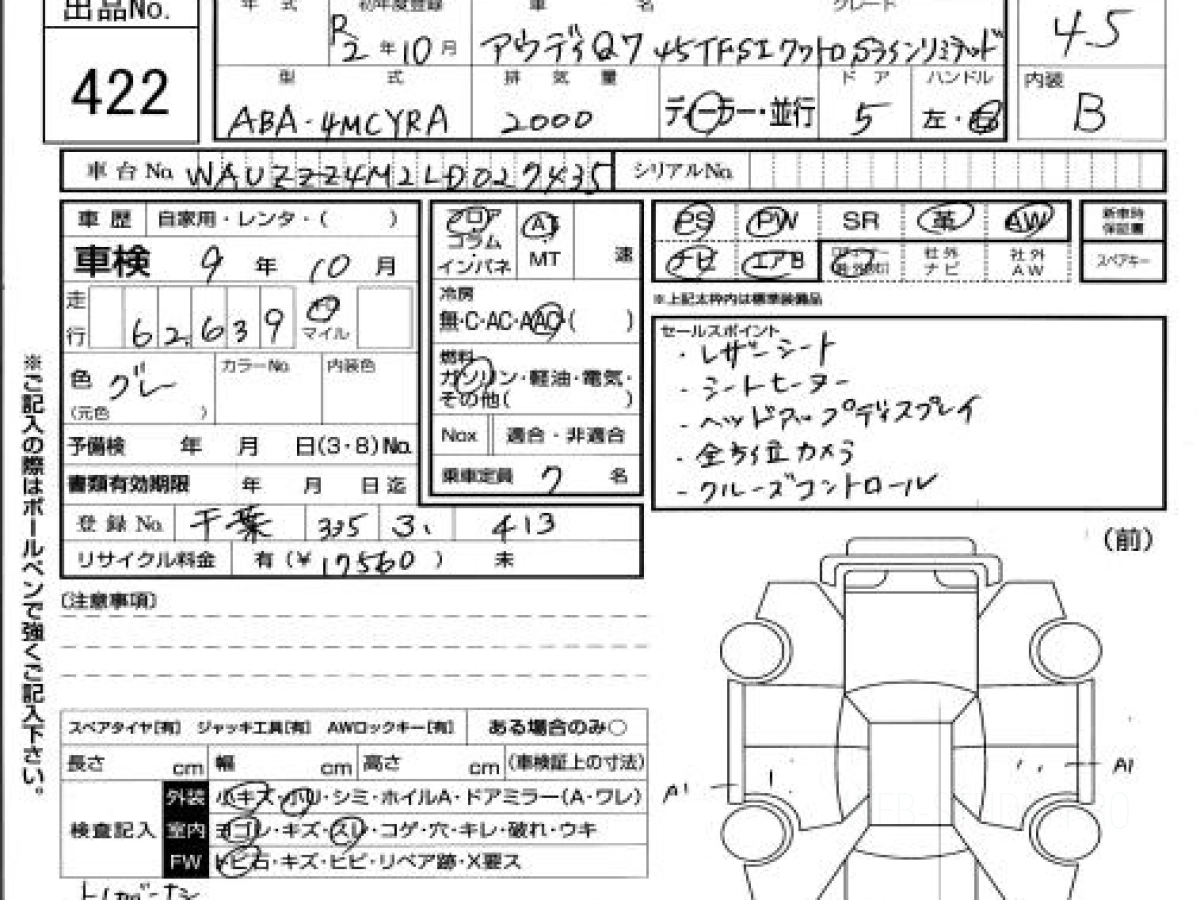 出品No.
年 式 初年度登録 車 名 グレード
R2年10月 アウディQ7 45TFSIクワトロSラインリミテッド 4.5
422
型 式 排 気 量 ド ア ハンドル 内装
ABA-4MCYRA 2000 ディーラー・並行 5 左・右 B
車台No. WAUZZZ4M2LD027435 シリアルNo.
車 歴 自家用・レンタ・( )
車検 9年 10月
走行 62,639 マイル
色 グレー カラーNo. 内装色
(元色 )
予備検 年 月 日(3・8)No.
書類有効期限 年 月 日迄
登録No. 千葉 335 3. 413
リサイクル料金 有(¥17560) 未
フロア AT
コラム MT 速
インパネ
冷房
無・C・AC・AAC・( )
燃料
ガソリン・軽油・電気・
その他( )
Nox 適合・非適合
乗車定員 7 名
PS PW SR 革 AW
ナビ エアB 社外ナビ 社外AW
新車時保証書
スペアキー
※上記太枠内は標準装備品
セールスポイント
・レザーシート
・シートヒーター
・ヘッドアップディスプレイ
・全方位カメラ
・クルーズコントロール
※ご記入の際はボールペンで強くご記入下さい。
(注意事項)
(前)
スペアタイヤ[有] ジャッキ工具[有] AWロックキー[有] ある場合のみ○
長さ cm 幅 cm 高さ cm (車検証上の寸法)
検査記入
外装 小キズ・ハリ・シミ・ホイルA・ドアミラー(A・ワレ)
室内 ヨゴレ・キズ・スレ・コゲ・穴・キレ・破れ・ウキ
FW トビ石・キズ・ヒビ・リペア跡・X要ス
A1
A1